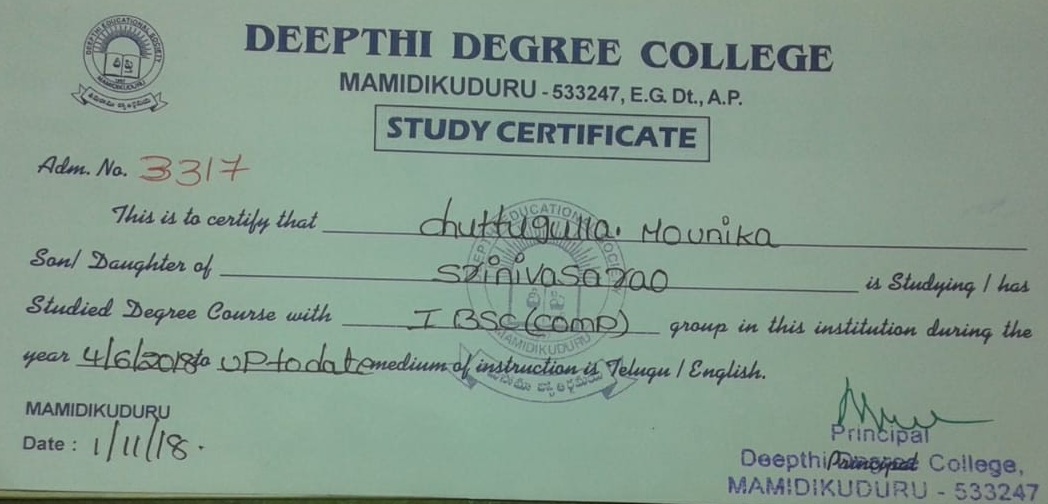 DEEPTHI EDUCATIONAL SOCIETY
MAMIDIKUDURU
DEEPTHI DEGREE COLLEGE
MAMIDIKUDURU - 533247, E.G. Dt., A.P.
STUDY CERTIFICATE
Adm. No. 3317
This is to certify that Chuttugulla. Mounika
Son/ Daughter of Srinivasarao is Studying / has
Studied Degree Course with I BSC (comp) group in this institution during the
year 4/6/2018 to UP to date medium of instruction is Telugu / English.
MAMIDIKUDURU
Date : 1/11/18.
Principal
Deepthi Degree College,
MAMIDIKUDURU - 533247